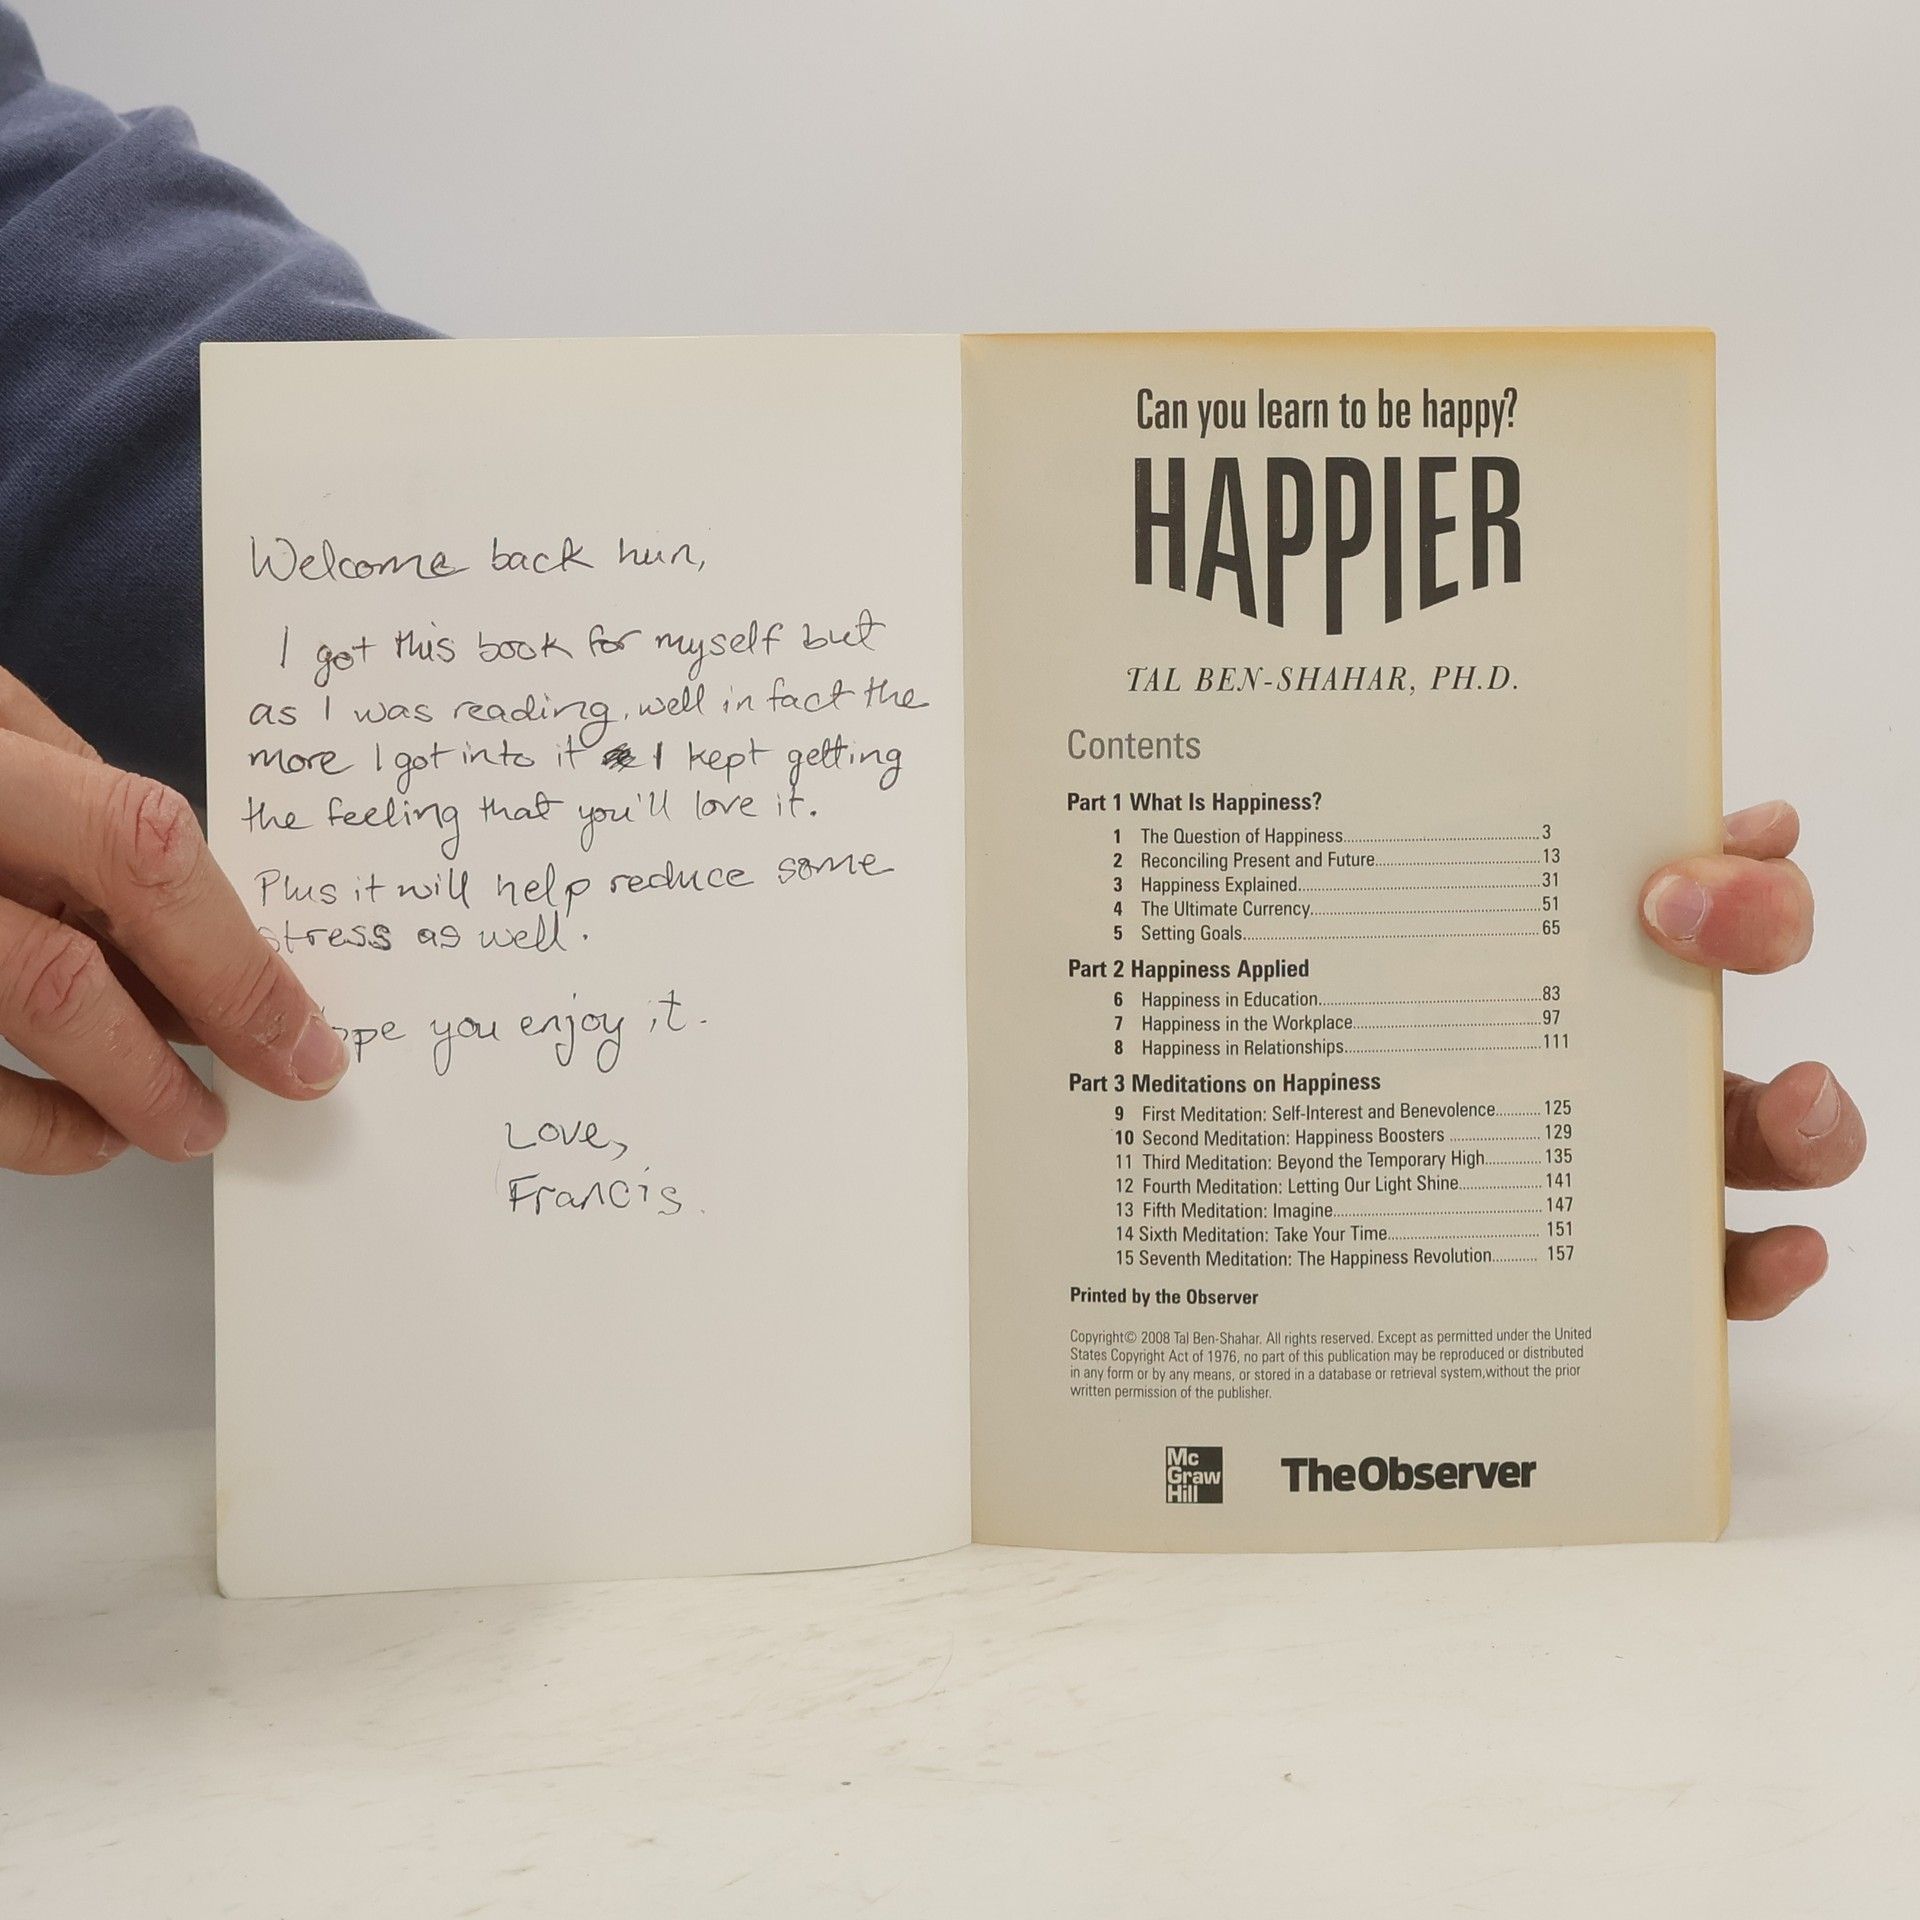 Welcome back hun,
I got this book for myself but
as I was reading, well in fact the
more I got into it I kept getting
the feeling that you'll love it.
Plus it will help reduce some
stress as well.
ope you enjoy it.
Love,
Francis.
Can you learn to be happy?
HAPPIER
TAL BEN-SHAHAR, PH.D.
Contents
Part 1 What Is Happiness?
1 The Question of Happiness 3
2 Reconciling Present and Future 13
3 Happiness Explained 31
4 The Ultimate Currency 51
5 Setting Goals 65
Part 2 Happiness Applied
6 Happiness in Education 83
7 Happiness in the Workplace 97
8 Happiness in Relationships 111
Part 3 Meditations on Happiness
9 First Meditation: Self-Interest and Benevolence 125
10 Second Meditation: Happiness Boosters 129
11 Third Meditation: Beyond the Temporary High 135
12 Fourth Meditation: Letting Our Light Shine 141
13 Fifth Meditation: Imagine 147
14 Sixth Meditation: Take Your Time 151
15 Seventh Meditation: The Happiness Revolution 157
Printed by the Observer
Copyright© 2008 Tal Ben-Shahar. All rights reserved. Except as permitted under the United
States Copyright Act of 1976, no part of this publication may be reproduced or distributed
in any form or by any means, or stored in a database or retrieval system,without the prior
written permission of the publisher.
Mc
Graw
Hill
TheObserver